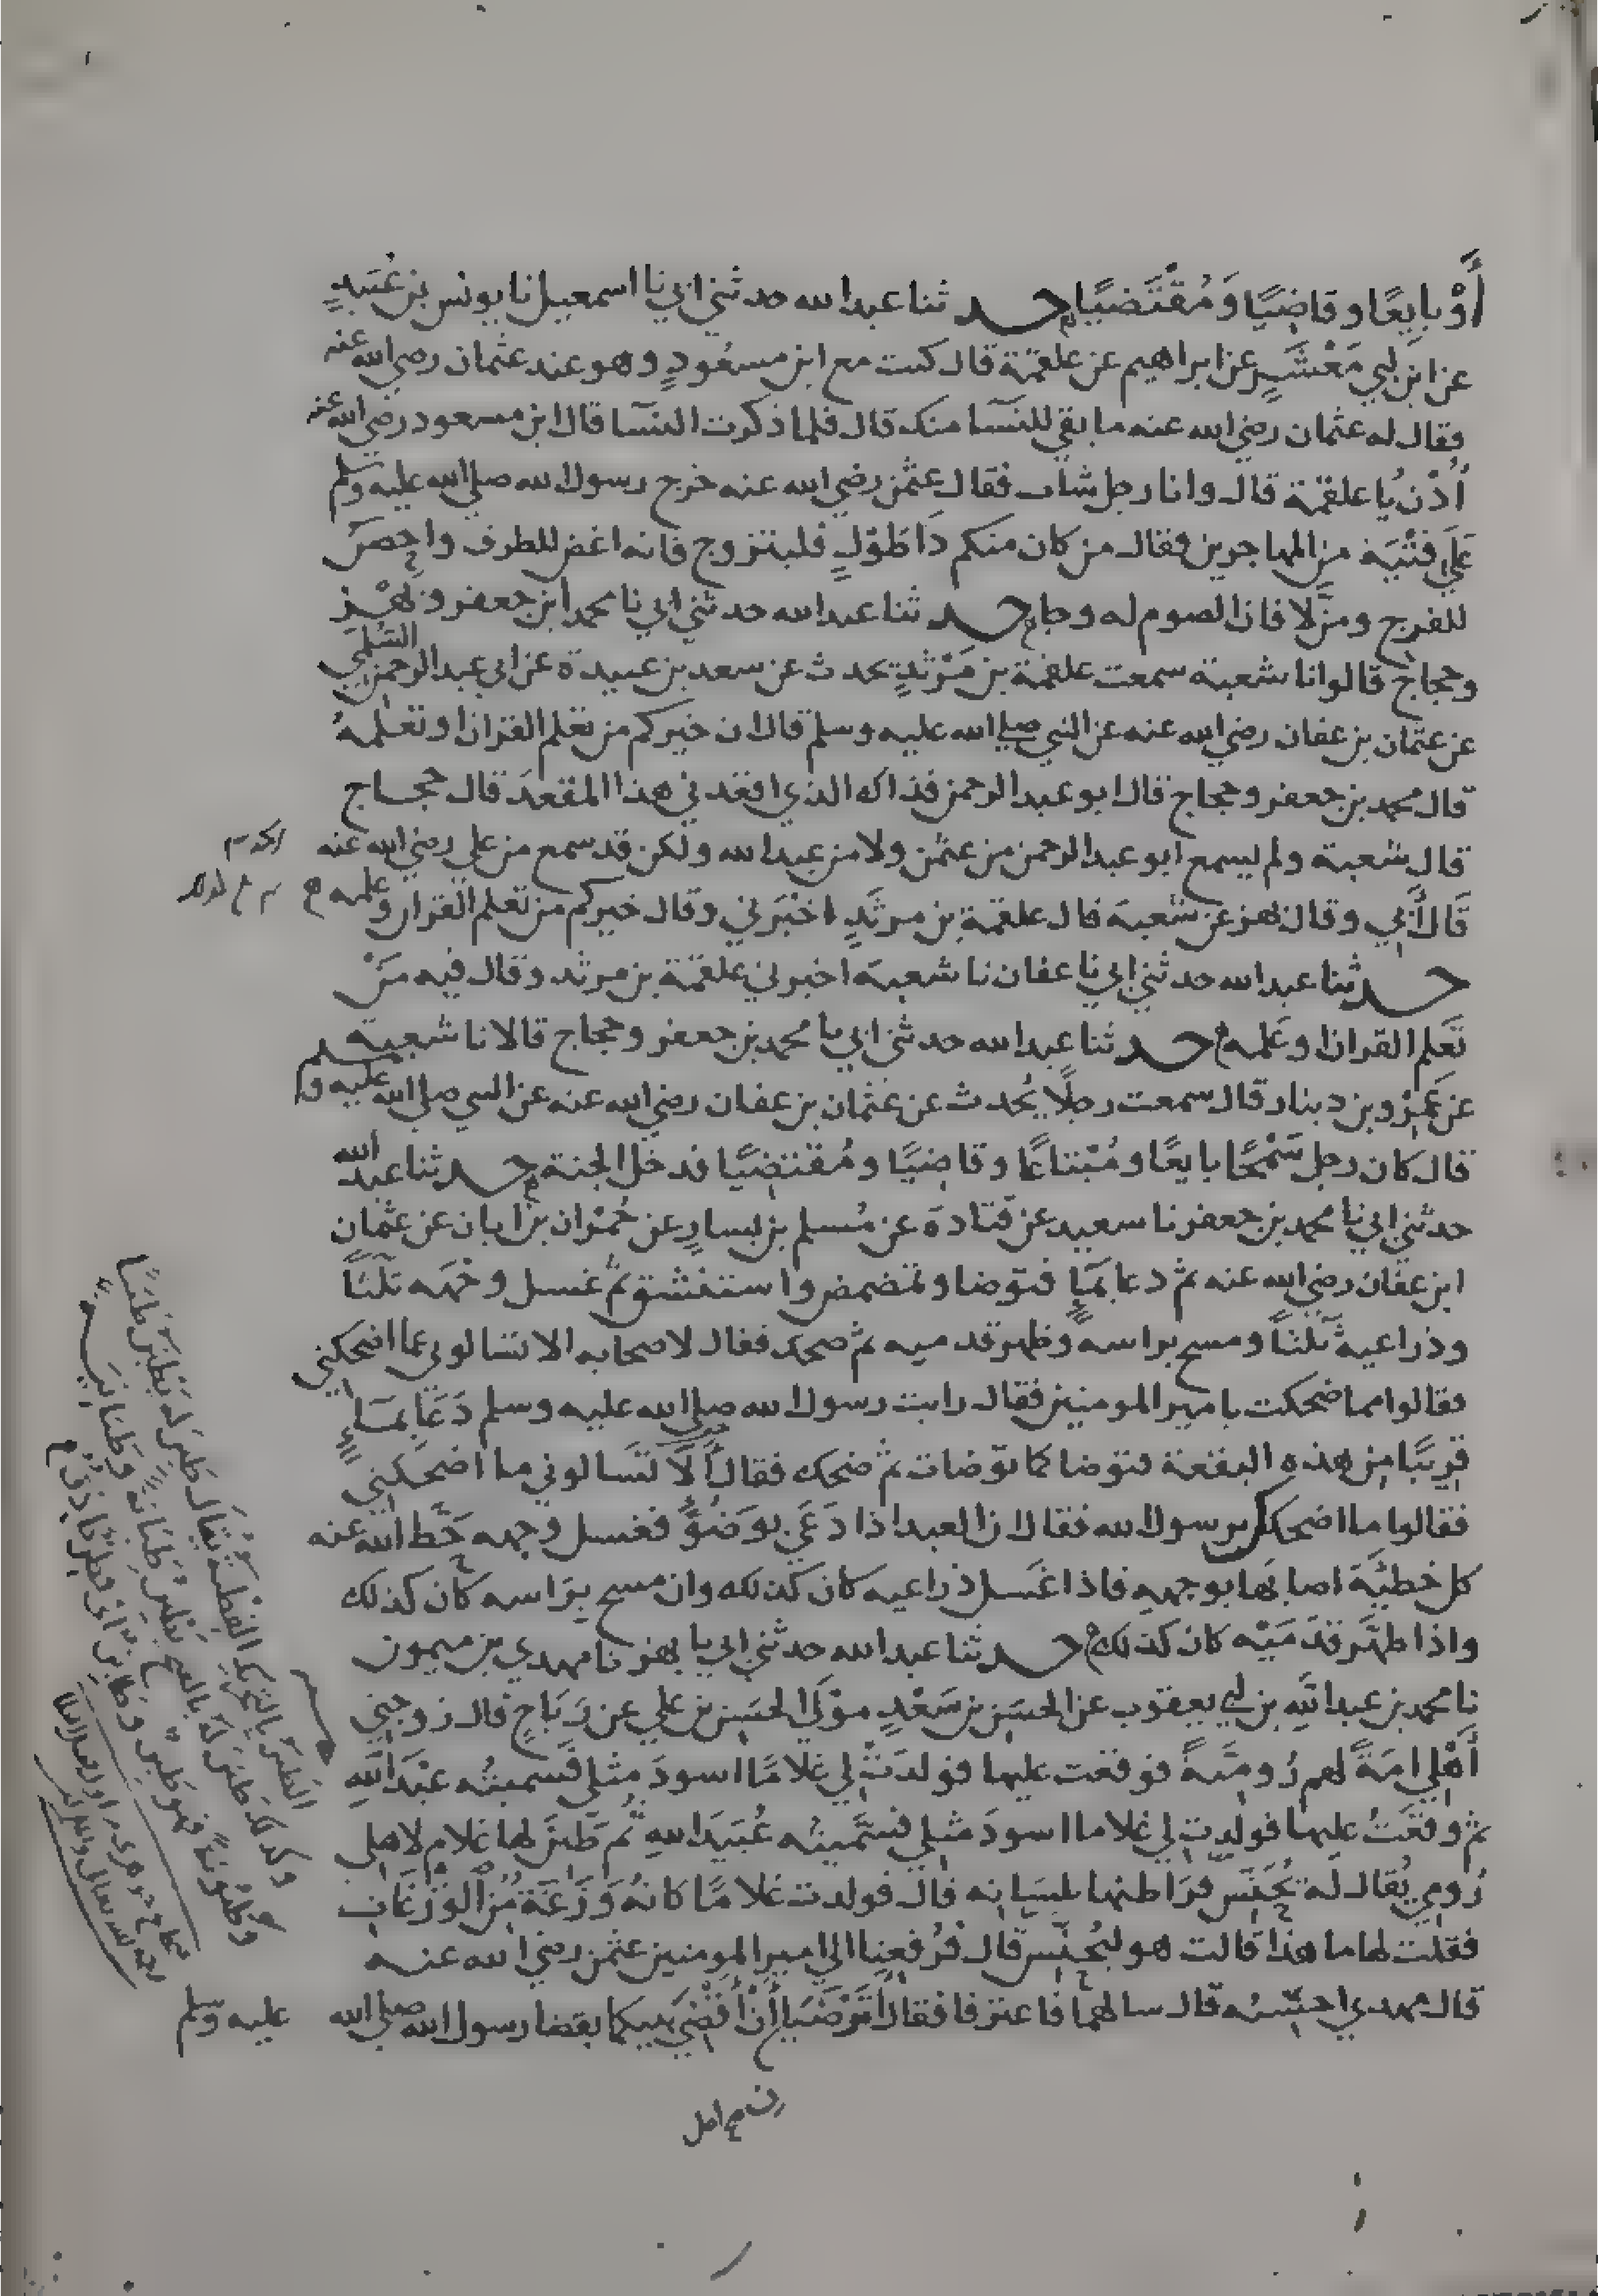 أَوْ بايِعًا وقاضِيًا وَمُقْتَضيًا حدثنا عبد الله حدثني ابي نا اسمعيل نا يونس بن عُبَيدٍ
عن ابن ابي مَعْشَرٍ عن ابراهيم عن علقمة قال كنت مع ابن مسعُودٍ وهو عند عثمان رضي الله عنه
فقال له عثمان رضي الله عنه ما بقي للنسآ منك قال فلما ذكرت النسآ قال ابن مسعود رضي الله عنه
اُدْنُ يا علقمة قال وانا رجل شاب فقال عثمن رضي الله عنه خرج رسول الله صلى الله عليه وسلم
عَلَى فِتْيَة من المهاجرين فقال من كان منكم ذا طَوْلٍ فليتزوج فانه اغض للطرف واحصَن
للفرج ومن لا فان الصوم له وجاء حدثنا عبد الله حدثني ابي نا محمد ابن جعفر وبَهْز
وحجاج قالوا نا شعبة سمعت علقمة بن مَرْثَدٍ يحدث عن سعد بن عبيدة عن ابي عبد الرحمن السُّلَمي
عن عثمان بن عفان رضي الله عنه عن النبي صلى الله عليه وسلم قال ان خيركم من تعلم القران او تعلمهُ
قال محمد بن جعفر وحجاج قال ابو عبد الرحمن فذاك الذي اقعدني هذا المقعدَ قال حجاج
قال شعبة ولم يسمع ابو عبد الرحمن من عثمن ولا من عبد الله ولكن قد سمع من علي رضي الله عنه
قَالَ أَبي وقال بهز عن شعبة قال علقمة بن مرثَدٍ اخْبَرني وقال خيركم من تعلم القران وعلمه
حدثنا عبد الله حدثني ابي نا عفان نا شعبة اخبرني علقمة بن مرثد وقال فيه مَنْ
تَعَلم القران او عَلمه حدثنا عبد الله حدثني ابي نا محمد بن جعفر وحجاج قالا نا شعبة
عن عَمْرو بن دينار قال سمعت رجلًا يُحدث عن عثمان بن عفان رضي الله عنه عن النبي صلى الله عليه وسلم
قال كان رجل سَمْحًا بايعًا ومُبْتاعًا وقاضِيًا ومُقتضِيًا فدخل الجنة حدثنا عبد الله
حدثني ابي نا محمد بن جعفر نا سعيد عن قتادة عن مُسلم بن يسارٍ عن حُمْران بن ابان عن عثمان
ابن عفان رضي الله عنه ثم دعا بمَاءٍ فتوضا وتمضمض واستنشق ثم غسل وجهه ثلثًا
وذراعيه ثلثًا ثلثًا ومسح براسه وظهر قدميه ثم ضحك فقال لاصحابه الا تسالوني عما اضحكني
فقالوا مما ضحكت يامير المومنين فقال رايت رسول الله صلى الله عليه وسلم دَعَا بمَاءٍ
قريبًا من هذه البقعة فتوضا كما توضات ثم ضحك فقال أَلَا تَسالوني ما اضحكني
فقالوا ما اضحكك يرسول الله فقال ان العبد اذا دَعَي بوَضُوءٍ فغسل وجهه حَطَّ الله عنه
كل خطيَّة اصابها بوجهه فاذا غَسل ذراعيه كان كذلك وان مسح برَاسه كان كذلك
واذا طهَّر قدمَيْه كان كذلك حدثنا عبد الله حدثني ابي نا بهز نا مهدي بن ميمون
نا محمد بن عبد الله بن ابي يعقوب عن الحسَن بن سَعْدٍ موْلَى الحسَن بن علي عن رَبَاحٍ قال زوجني
أَهْلِي امَةً لهم رُوميَّةً فوقعت عليها فولدَتْ لي غلامًا اسودَ مثلي فسميتُه عبْدَ اللهِ
ثم وقعْتُ عليها فولدت لي غلاما اسودَ مثلي فسَمَّيتُه عُبَيدَ اللهِ ثم طَبِنَ لها غلام لاهلي
رُومِي يُقال لهُ يُحَنَّس فرَاطنها بلسَانه قال فولدت غلامًا كانهُ وَزَغَة مُن الوَزَغَات
فقلت لها ما هذا قالت هو ليُحنَّس قال فرُفعنا الى امير المومنين عثمن رضي الله عنه
قال مهدي احسبُه قال سالهما فاعترفا فقال أَتَرْضَيَان أَنْ أَقْضيَ بينكما بقضا رسول الله صلى الله عليه وسلم